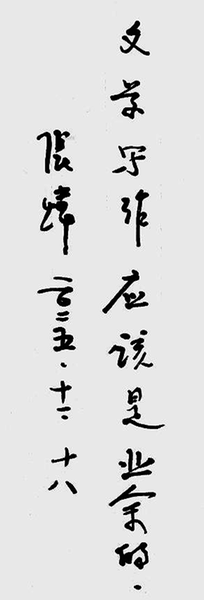 文学写作应该是业余的.
张炜 二〇二五.十二.十八